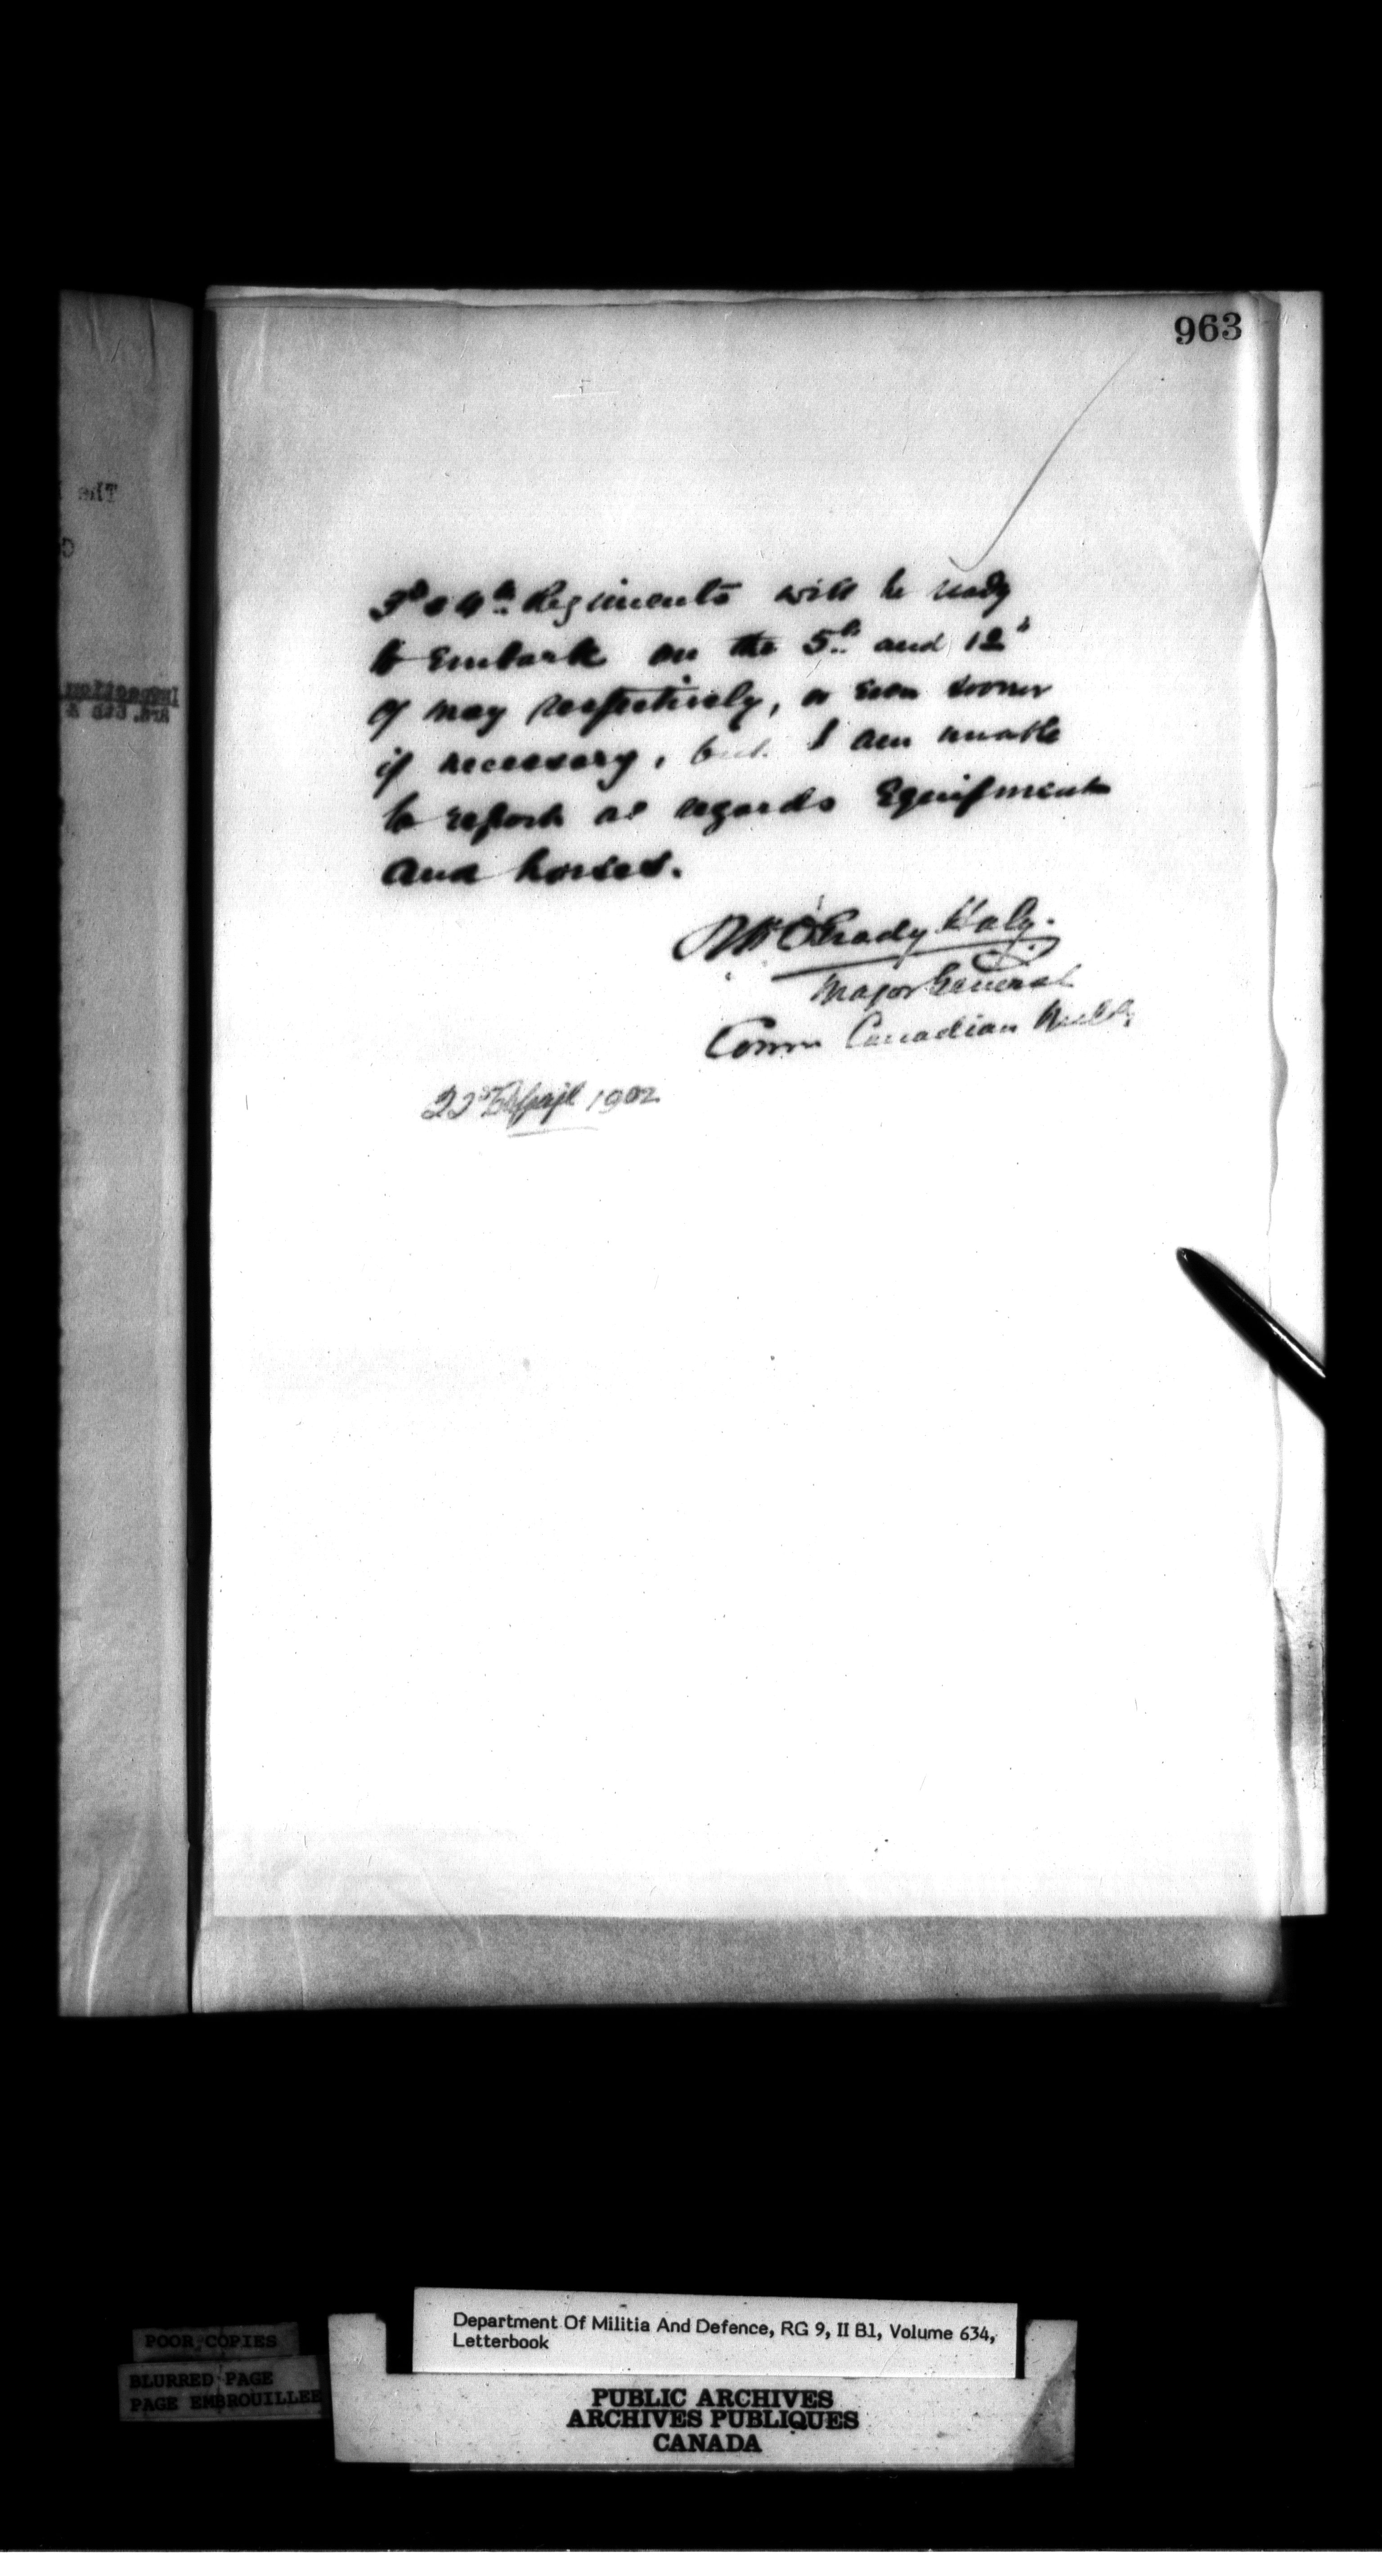 963
3d & 4th Regiments will be ready
to Embark on the 5th and 12th
of May respectively, or even sooner
if necessary, but I am unable
to report as regards Equipment
and horses.
RH O'Grady Haly.
Major General
Comm Canadian Militia
22nd April 1902
The
Inspection
POOR COPIES
BLURRED PAGE
PAGE EMBROUILLEE
Department Of Militia And Defence, RG 9, II B1, Volume 634,
Letterbook
PUBLIC ARCHIVES
ARCHIVES PUBLIQUES
CANADA